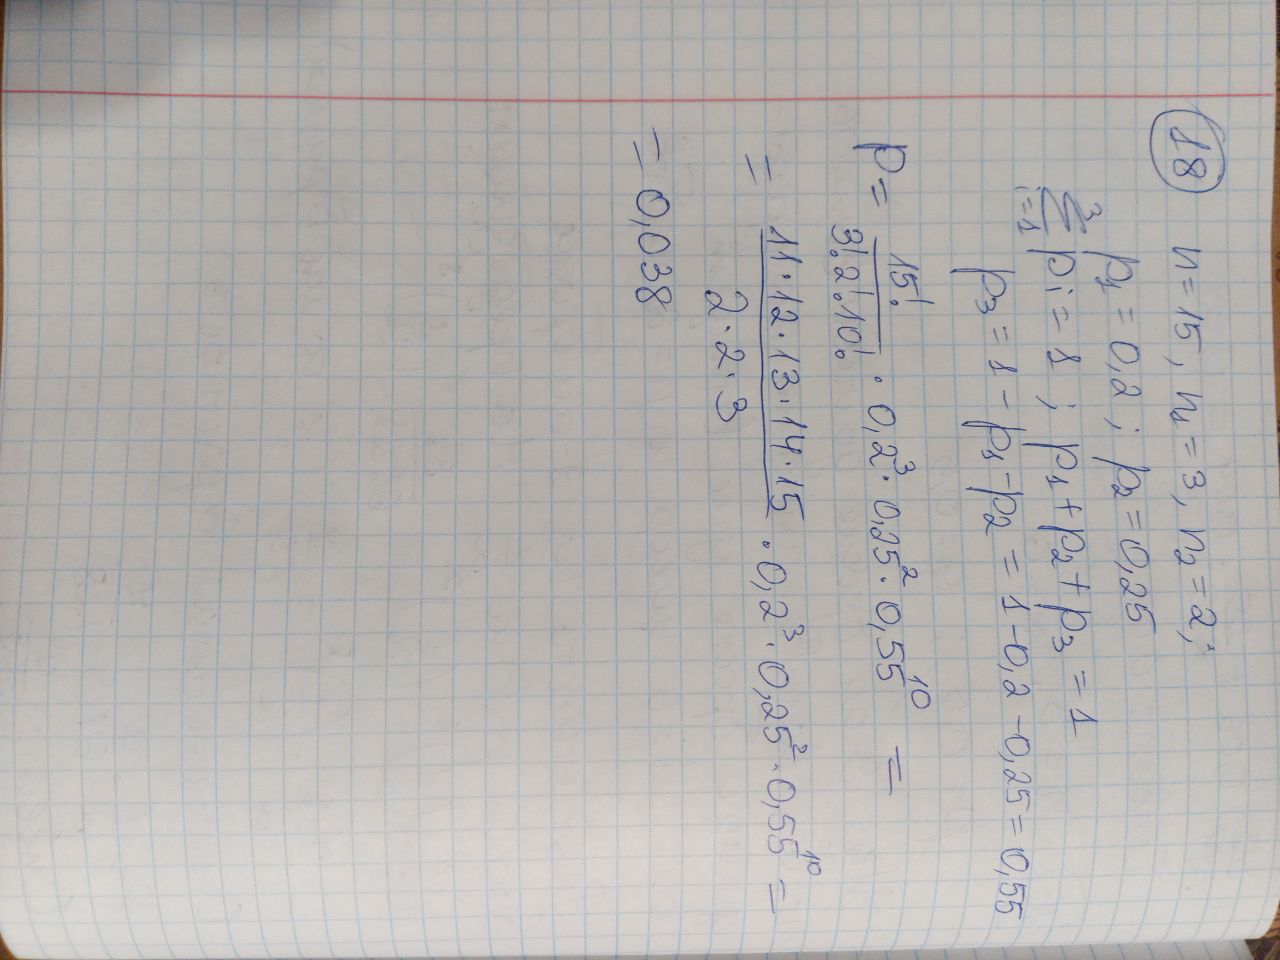 18 n=15, n₁=3, n₂=2;
p₁=0,2; p₂=0,25
3
∑ pi=1; p₁+p₂+p₃=1
i=1
p₃=1-p₁-p₂=1-0,2-0,25=0,55
P= 15!/(3!2!10!) · 0,2³ · 0,25² · 0,55¹⁰ =
= (11·12·13·14·15)/(2·2·3) · 0,2³ · 0,25² · 0,55¹⁰ =
= 0,038